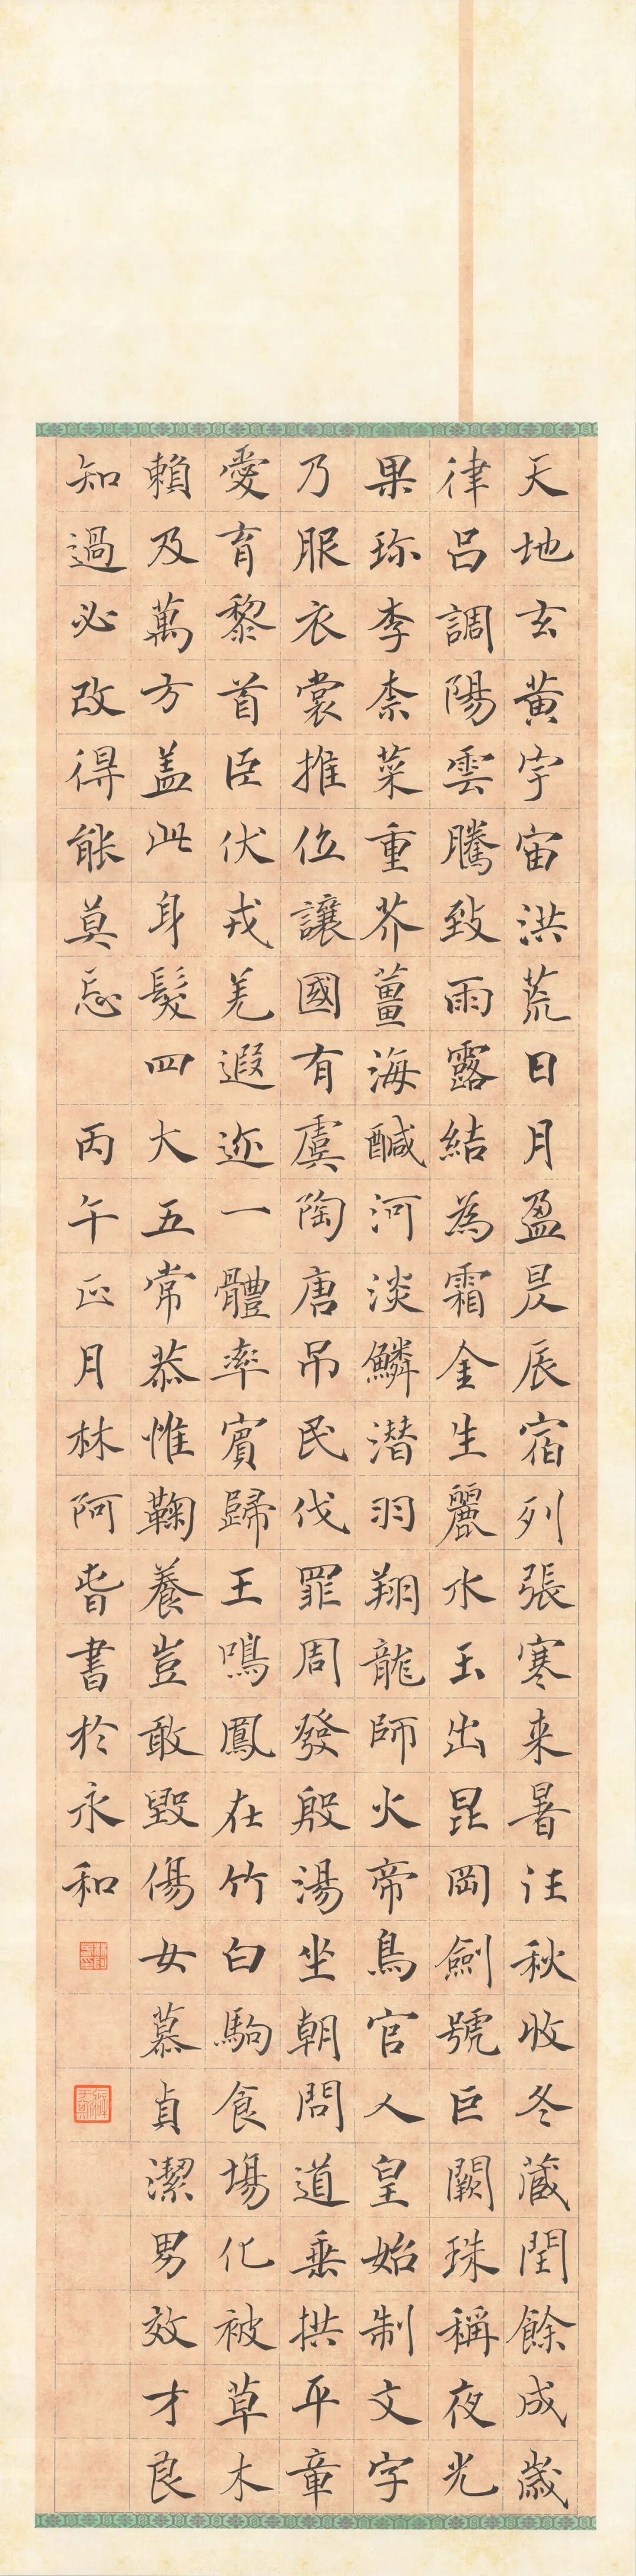 天地玄黃宇宙洪荒日月盈昃辰宿列張寒来暑往秋收冬藏閏餘成歲
律吕調陽雲騰致雨露結為霜金生麗水玉出昆岡劍號巨闕珠稱夜光
果珎李柰菜重芥薑海醎河淡鱗潛羽翔龍師火帝鳥官人皇始制文字
乃服衣裳推位讓國有虞陶唐吊民伐罪周發殷湯坐朝問道垂拱平章
愛育黎首臣伏戎羌遐迩一體率賓歸王鳴鳳在竹白駒食場化被草木
賴及萬方盖此身髮四大五常恭惟鞠養豈敢毀傷女慕貞潔男效才良
知過必改得能莫忘 丙午正月林阿書於永和